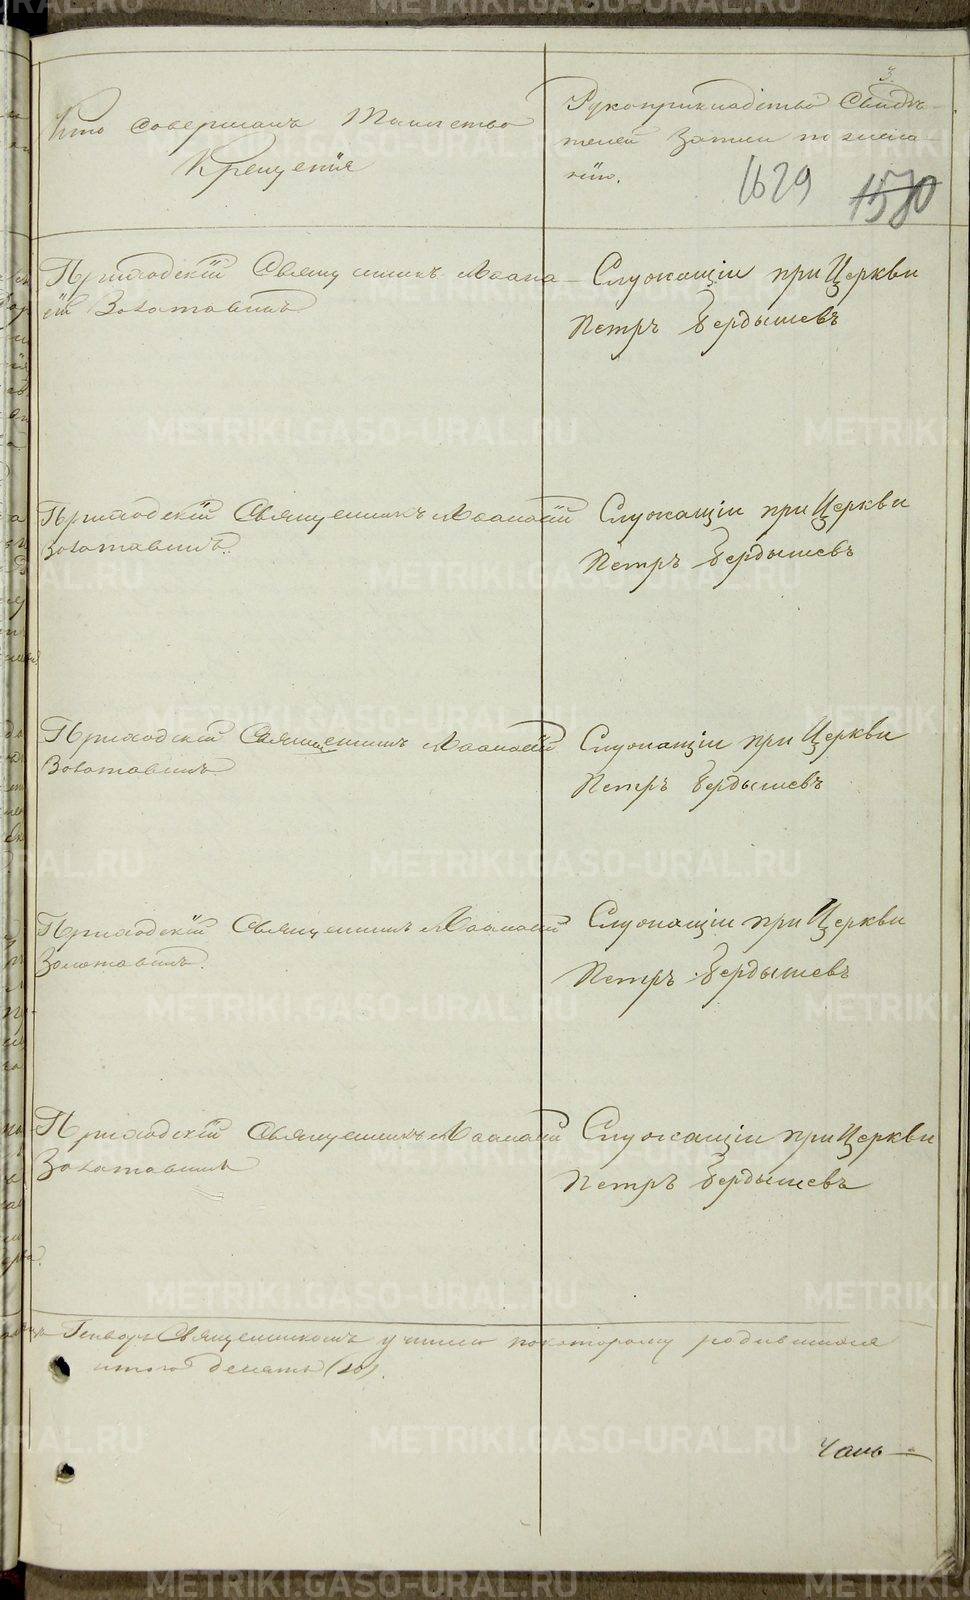 3.
Кто совершалъ Таинство
Крещенія
Рукоприкладство Свидѣ-
телей записи по жела-
нію.
1629 1570
Приходскій Священникъ Аѳана-
сій Золотавинъ
Служащій при Церкви
Петръ Бердышевъ
Приходскій Священникъ Аѳанасій
Золотавинъ.
Служащій при Церкви
Петръ Бердышевъ
Приходскій Священникъ Аѳанасій
Золотавинъ
Служащій при Церкви
Петръ Бердышевъ
Приходскій Священникъ Аѳанасій
Золотавинъ.
Служащій при Церкви
Петръ Бердышевъ
Приходскій Священникъ Аѳанасій
Золотавинъ
Служащій при Церкви
Петръ Бердышевъ
Священникомъ родившихся
итого десять (10).
METRIKI.GASO-URAL.RU